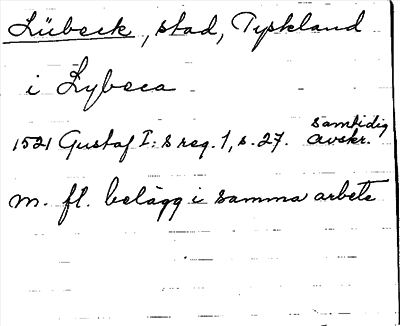 Lübeck, stad, Tyskland
i Lybeca
1521 Gustaf I:s reg. 1, s. 27. samtidig avskr.
m. fl. belägg i samma arbete